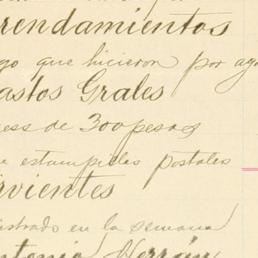 rrendamientos
go que hicieron por ag
astos Grales
ess de 300 pesos
e estampieles postales
rvientes
istrado en la semana
ntonio Herrán